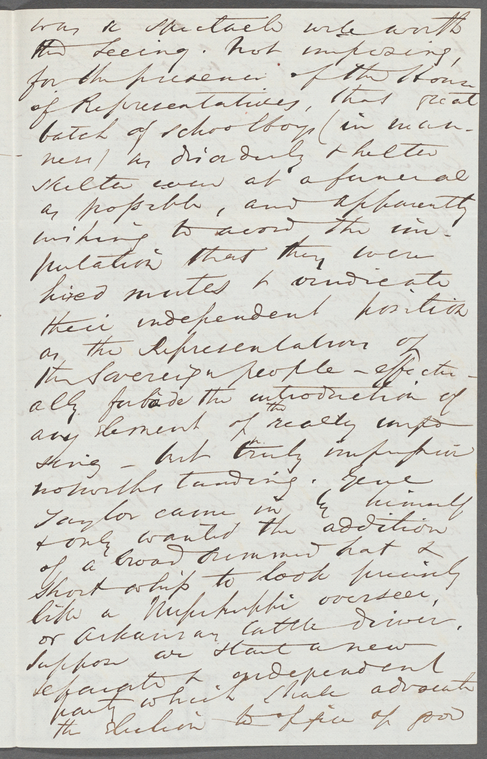 was a spectacle well worth
the seeing. Not imposing,
for the presence of the House
of Representatives, that great
batch of schoolboys (in man-
ners) as disorderly & helter
skelter even at a funeral
as possible, and apparently
wishing to avoid the im-
putation that they were
hired mutes & vindicate
their independent position
as the Representatives of
the Sovereign people - effectu-
ally forbade the introduction of
any element of the really impo
sing - but truly impressive
notwithstanding. Genl
Taylor came in by himself
& only wanted the addition
of a broad brimmed hat &
short whip to look precisely
like a Mississippi overseer,
or Arkansas Cattle driver.
Suppose we start a new
separate & independent
party which shall advocate
the election to office of good